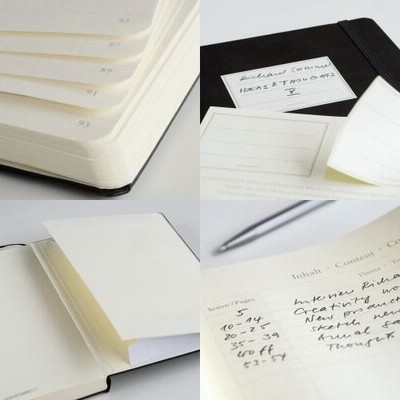 85
87
89
91
93
Richard
IDEAS & THOUGHTS
V
Inhalt · Content · Co
Seiten / Pages
Thema · To
5 Interview Richa
10-14 Creativity wo
20-25 New product
35-39 Sketch new
40ff Annual Sa
53-54 Thoughts